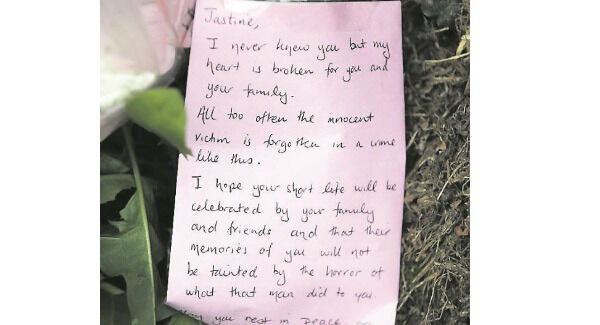 Jastine,
I never knew you but my
heart is broken for you and
your family.
All too often the innocent
victim is forgotten in a crime
like this.
I hope your short life will be
celebrated by your family
and friends and that their
memories of you will not
be tainted by the horror of
what that man did to you.
you rest in peace